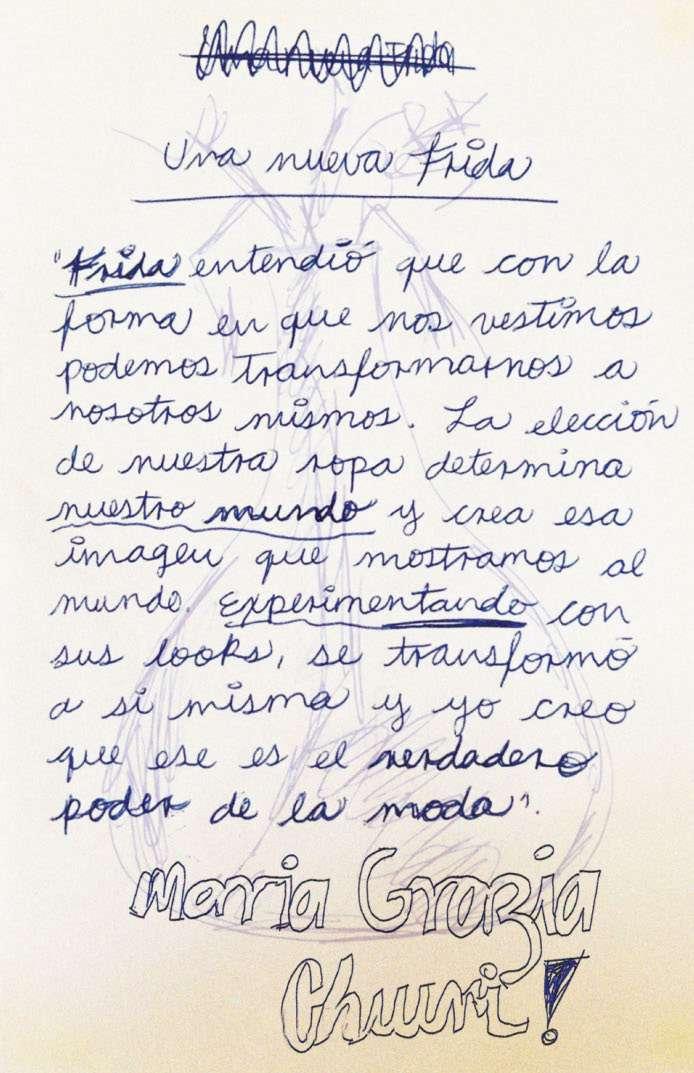 Una nueva Frida
"Frida entendió que con la
forma en que nos vestimos
podemos transformarnos a
nosotros mismos. La elección
de nuestra ropa determina
nuestro mundo y crea esa
imagen que mostramos al
mundo. Experimentando con
sus looks, se transformó
a si misma y yo creo
que ese es el verdadero
poder de la moda".
Maria Grazia
Chiuri!